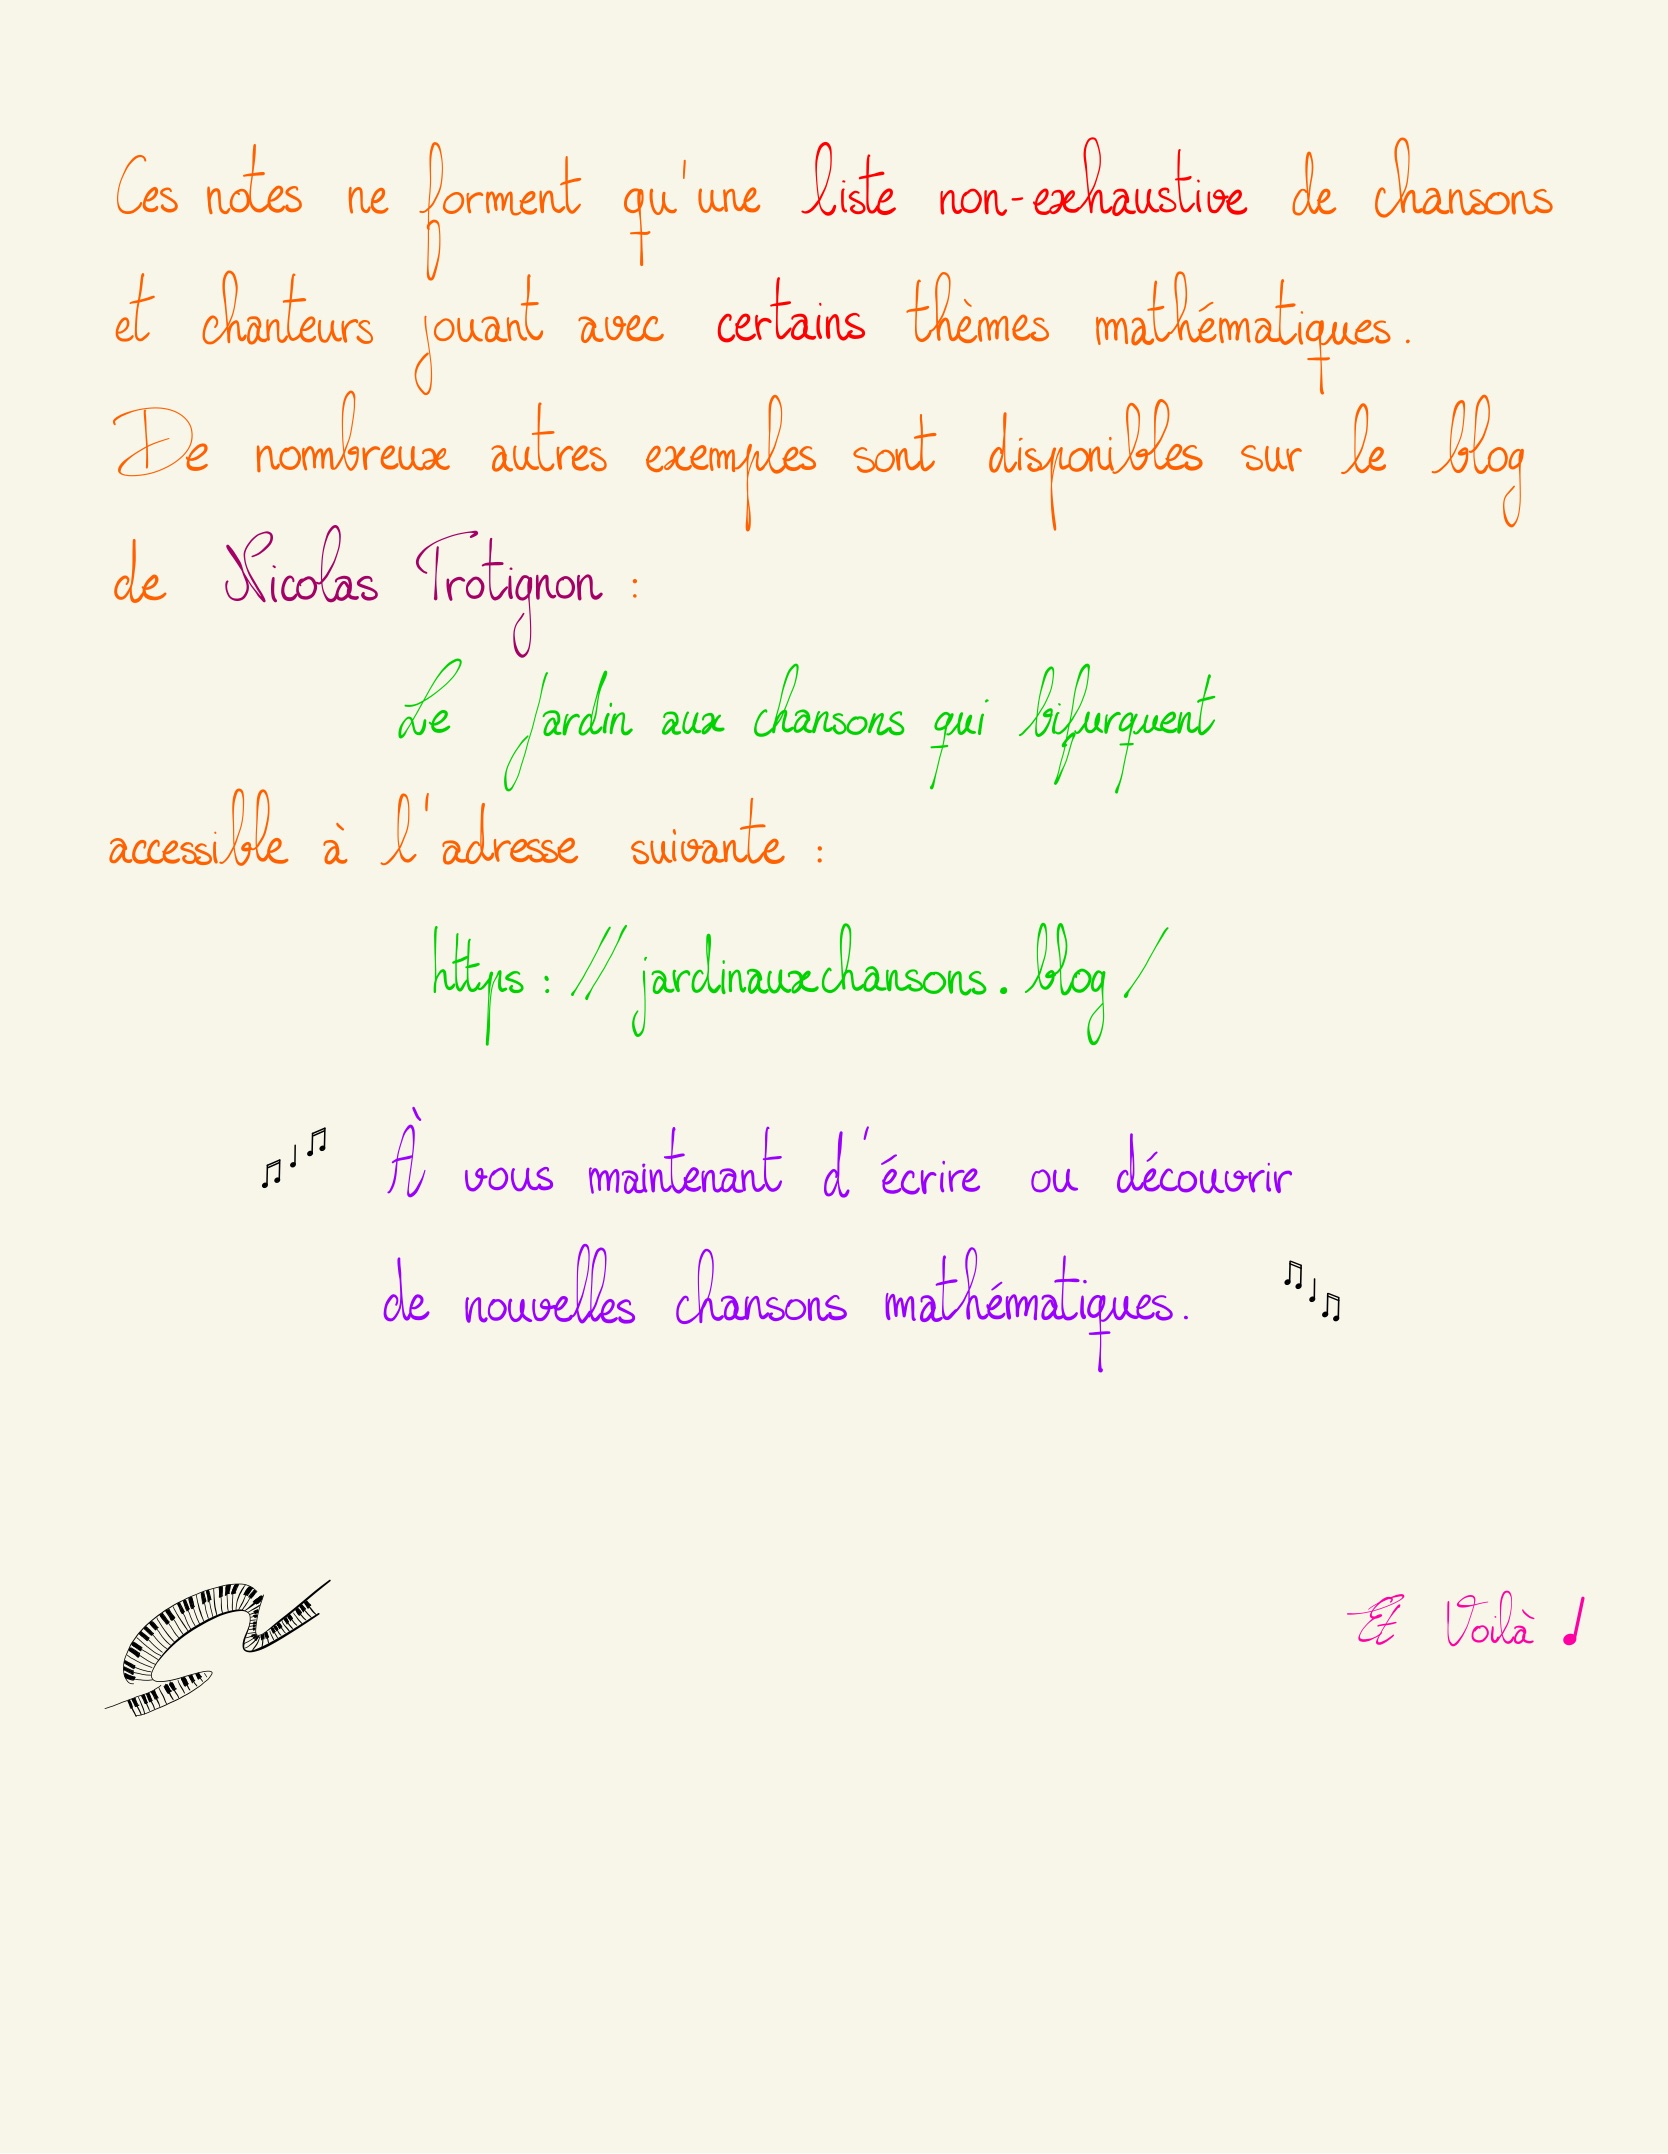 Ces notes ne forment qu'une liste non-exhaustive de chansons
et chanteurs jouant avec certains thèmes mathématiques.
De nombreux autres exemples sont disponibles sur le blog
de Nicolas Trotignon :
Le Jardin aux chansons qui bifurquent
accessible à l'adresse suivante :
https://jardinauxchansons.blog/
À vous maintenant d'écrire ou découvrir
de nouvelles chansons mathématiques.
Et Voilà